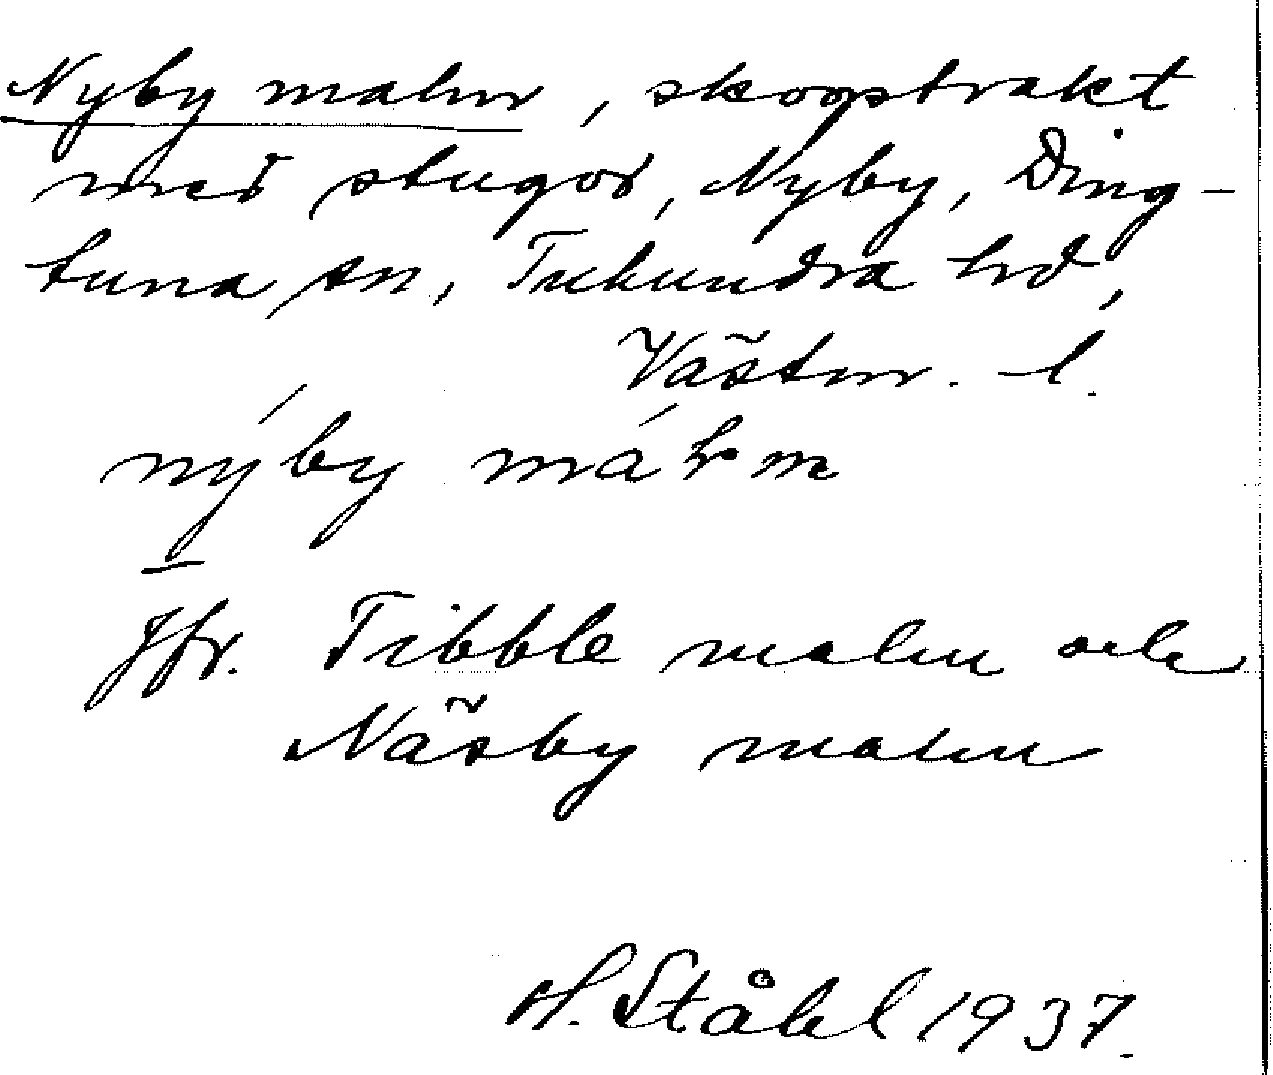 Nyby malm, skogstrakt
med stugor, Nyby, Ding-
tuna sn, Tuhundra hd,
Västm. l.
nýby málm
Jfr. Tibble malm och
Näsby malm
H. Ståhl 1937.